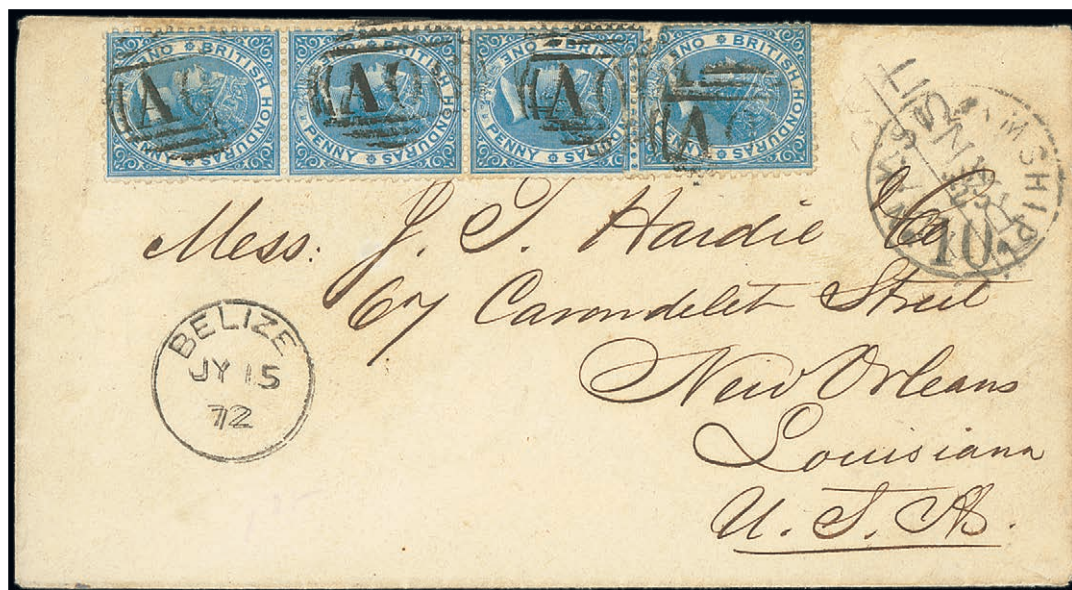 BRITISH HONDURAS ONE PENNY
BRITISH HONDURAS ONE PENNY
BRITISH HONDURAS ONE PENNY
BRITISH HONDURAS ONE PENNY
A
A
A
A
SHIP
10
Mess: J. T. Hardie & Co
67 Carondelet Street
New Orleans
Louisiana
U. S. A.
BELIZE
JY 15
72